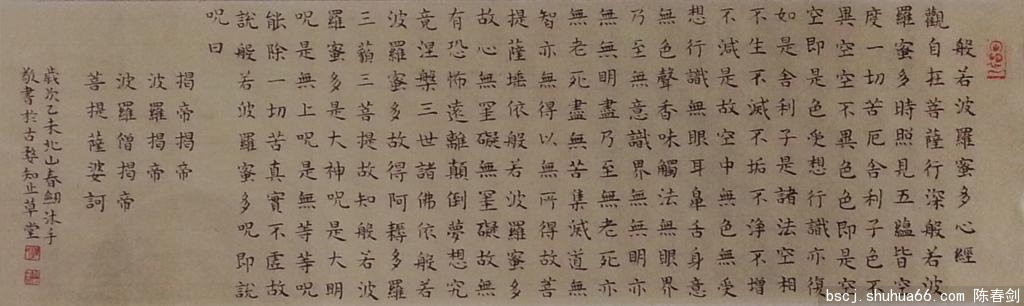 般若波羅蜜多心經
觀自在菩薩行深般若波
羅蜜多時照見五蘊皆空
度一切苦厄舍利子色不
異空空不異色色即是空
空即是色受想行識亦復
如是舍利子是諸法空相
不生不滅不垢不淨不增
不減是故空中無色無受
想行識無眼耳鼻舌身意
無色聲香味觸法無眼界
乃至無意識界無無明亦
無無明盡乃至無老死亦
無老死盡無苦集滅道無
智亦無得以無所得故菩
提薩埵依般若波羅蜜多
故心無罣礙無罣礙故無
有恐怖遠離顛倒夢想究
竟涅槃三世諸佛依般若
波羅蜜多故得阿耨多羅
三藐三菩提故知般若波
羅蜜多是大神呪是大明
呪是無上呪是無等等呪
能除一切苦真實不虛故
說般若波羅蜜多呪即說
呪曰
揭帝揭帝
波羅揭帝
波羅僧揭帝
菩提薩婆訶
歲次乙未北山春釰沐手
敬書於古婺知止草堂
bscj.shuhua66.com 陈春剑